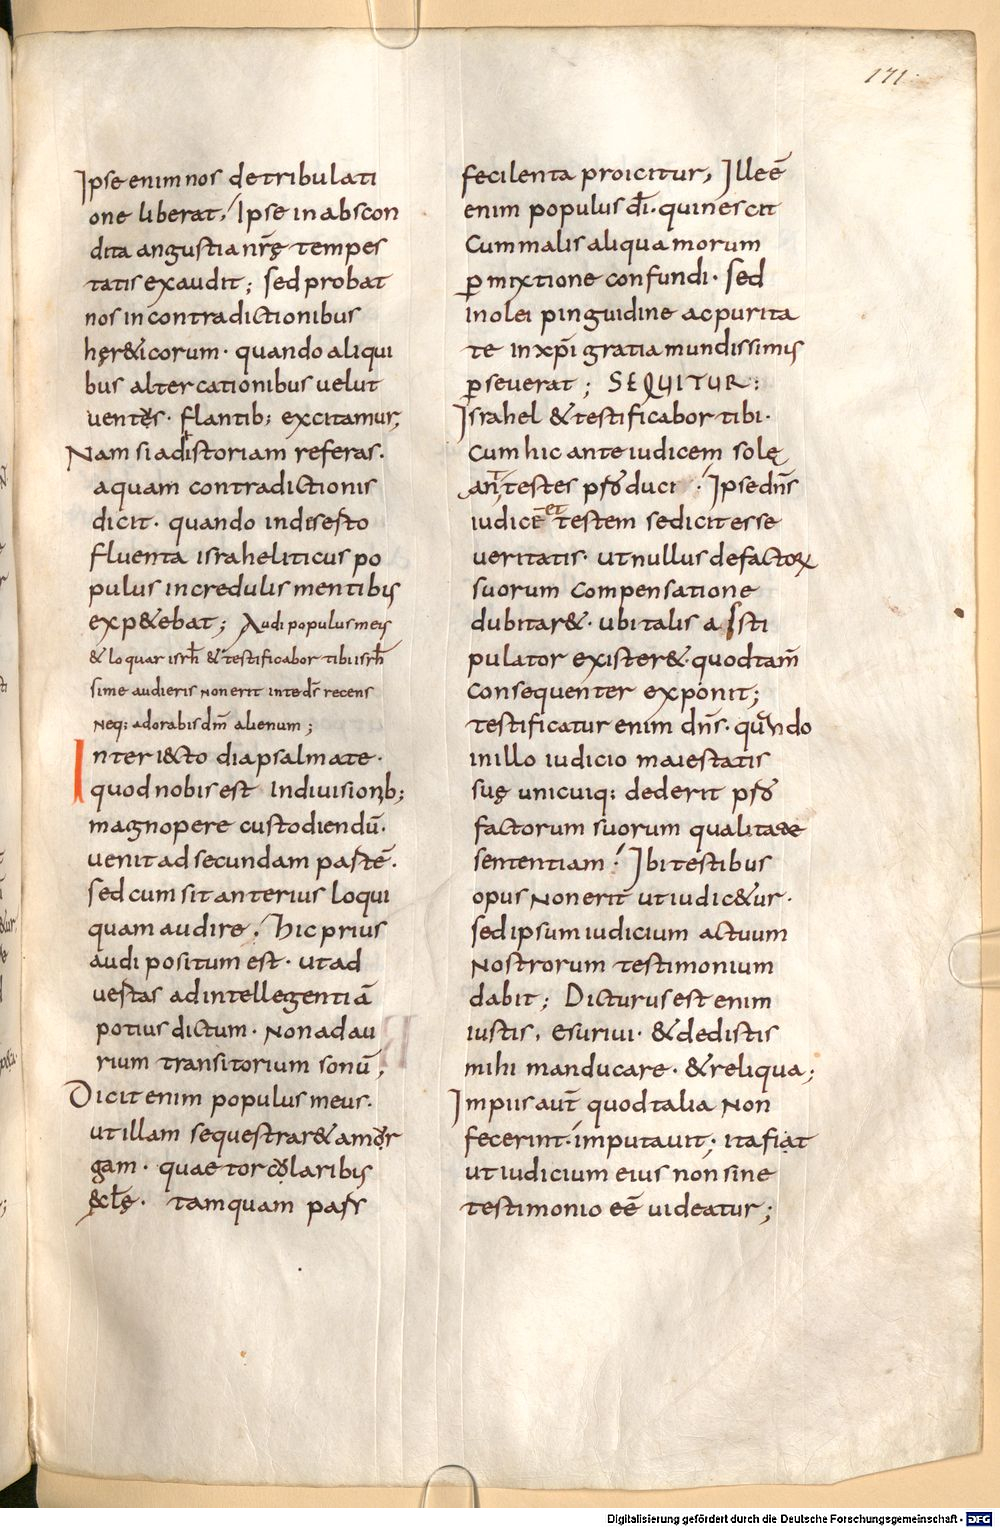 171.
Ipse enim nos de tribulati
one liberat, Ipse in abscon
dita angustia nr̄ę tempes
tatis exaudit; sed probat
nos in contradictionibus
hęr&icorum· quando aliqui
bus altercationibus uelut
uentęs· flantib; excitamur,
Nam si ad istoriam referas·
aquam contradictionis
dicit· quando indisesto
fluenta israheliticus po
pulus incredulis mentibus
exp&ebat; Audi populus meus
& loquar isrh̄ & testificabor tibi isrh̄
si me audieris non erit in te ds̄ recens
neq; adorabis dm̄ alienum;
Interi&cto diapsalmate·
quod nobis est in diuisionib;
magnopere custodiendū·
uenit ad secundam partē·
sed cum sit anterius loqui
quam audire, hic prius
audi positum est· ut ad
uestas ad intellegentiā
potius dictum· non ad au
rium transitorium sonū;
Dicit enim populus meus·
ut illam sequestrar& amor
gam· quae torcolaribus
&cl̄ę· tamquam pars
feculenta proicitur, Ille ē
enim populus dī· qui nescit
cum malis aliqua morum
ꝑmixtione confundi· sed
in olei pinguidine ac purita
te in xp̄i gratia mundissimus
ꝑseuerat; SEQUITUR:
Israhel & testificabor tibi·
cum hic ante iudicem solę
an̄t testes ꝓduci· Ipse dn̄s
iudicē et testem se dicit esse
ueritatis· ut nullus de factorum
suorum compensatione
dubitar&· ubi talis a[...]sti
pulator exister&· quod tam̄
consequenter exponit;
testificatur enim dn̄s· quando
in illo iudicio maiestatis
suę unicuiq; dederit ꝓ
factorum suorum qualitate
sententiam: Ibi testibus
opus non erit ut iudic&ur·
sed ipsum iudicium actuum
nostrorum testimonium
dabit; Dicturus est enim
iustis, esuriui· & dedistis
mihi manducare· & reliqua;
Impiis aut̄ quod talia non
fecerint· imputauit; ita fiat
ut iudicium eius non sine
testimonio eē uideatur;
Digitalisierung gefördert durch die Deutsche Forschungsgemeinschaft - DFG